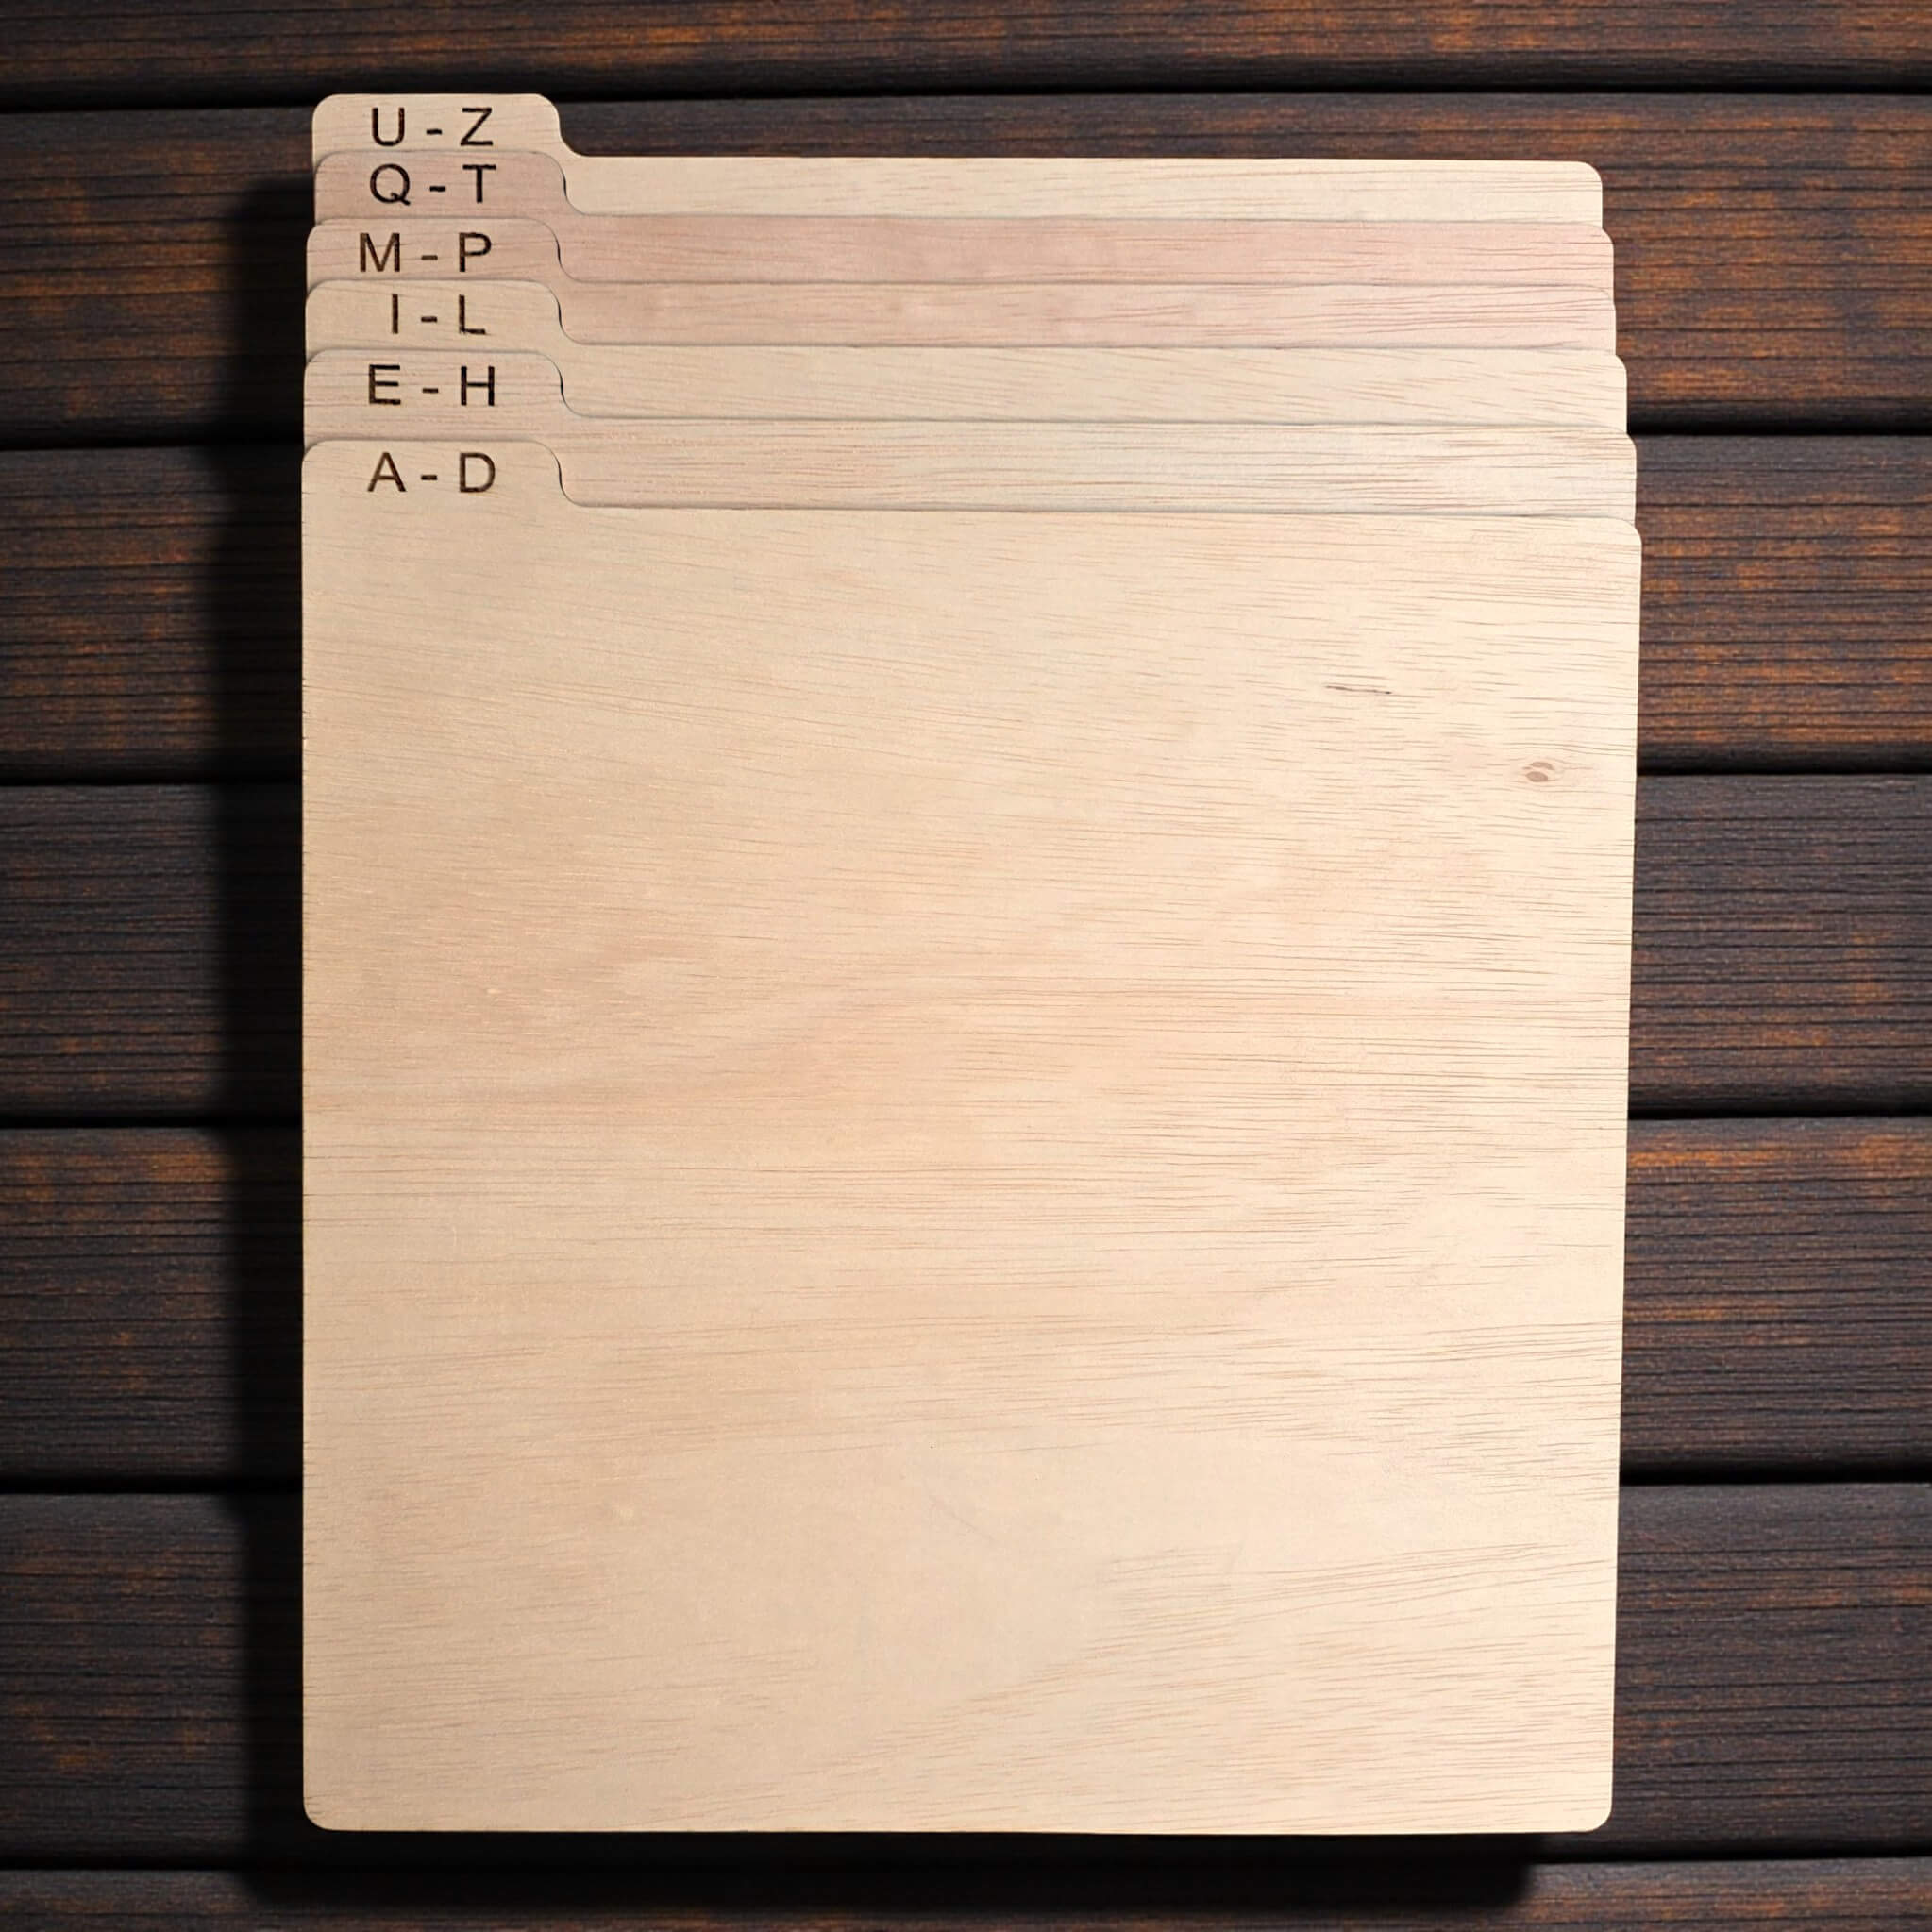 U - Z
Q - T
M - P
I - L
E - H
A - D